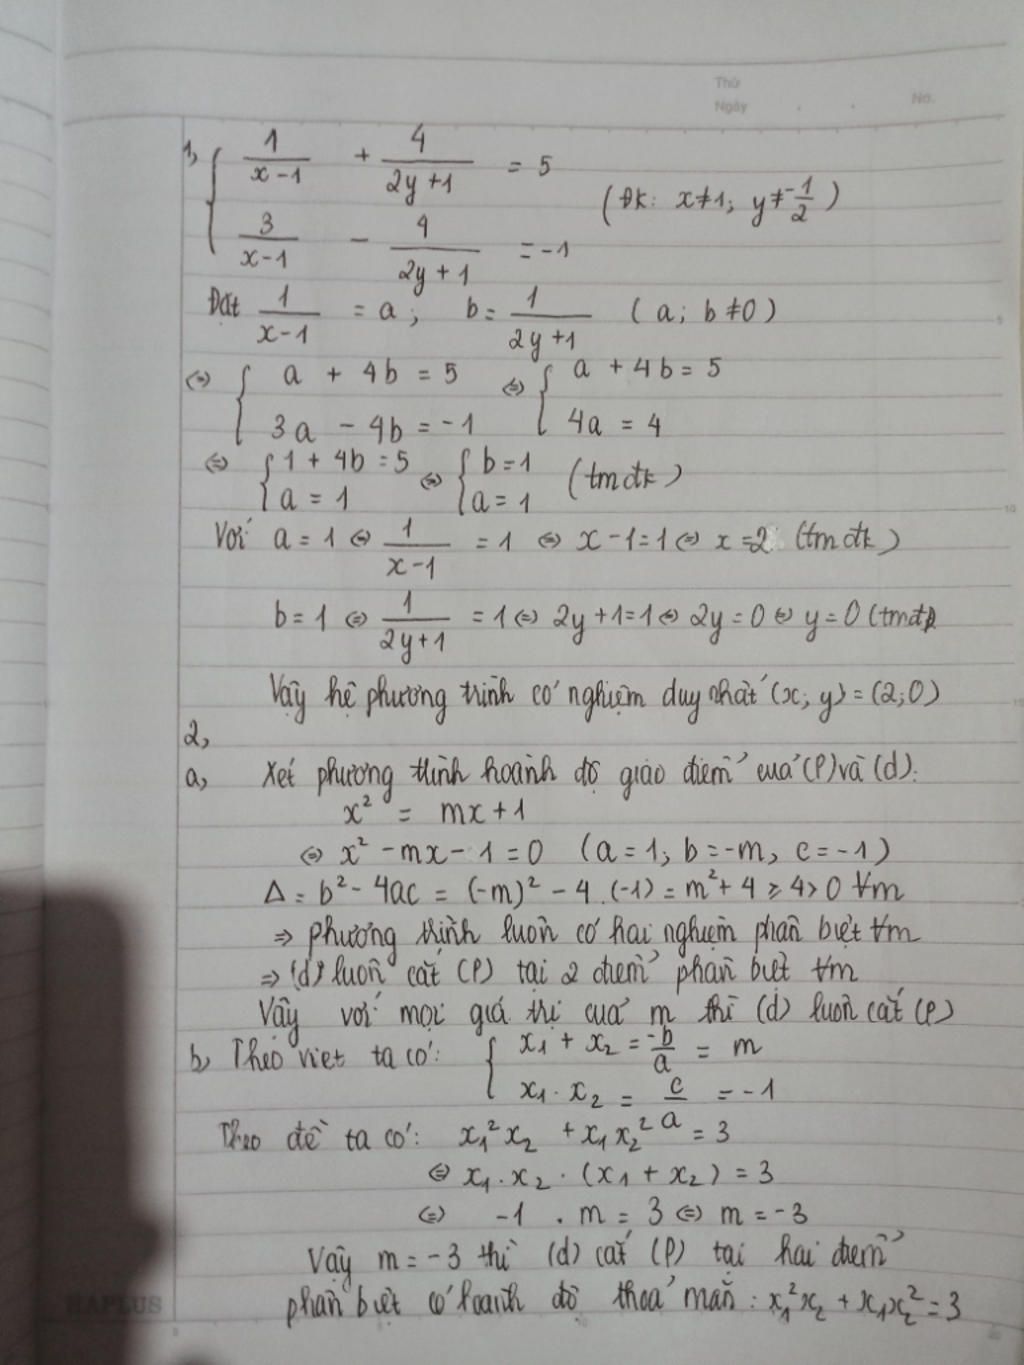 Thứ
Ngày . . No.
1, { 1/(x-1) + 4/(2y+1) = 5
(ĐK: x≠1; y≠-1/2)
3/(x-1) - 4/(2y+1) = -1
Đặt 1/(x-1) = a; b = 1/(2y+1) (a; b ≠0)
⇔ { a + 4b = 5 ⇔ { a + 4b = 5
3a - 4b = -1 4a = 4
⇔ { 1 + 4b = 5 ⇔ { b = 1 (tmđk)
a = 1 a = 1
Với a = 1 ⇔ 1/(x-1) = 1 ⇔ x-1=1 ⇔ x=2 (tmđk)
b = 1 ⇔ 1/(2y+1) = 1 ⇔ 2y+1=1 ⇔ 2y=0 ⇔ y=0 (tmđk)
Vậy hệ phương trình có nghiệm duy nhất (x; y) = (2;0)
2,
a, Xét phương trình hoành độ giao điểm của (P) và (d):
x² = mx+1
⇔ x² - mx - 1 = 0 (a=1; b=-m, c=-1)
Δ = b² - 4ac = (-m)² - 4.(-1) = m²+4 ≥ 4 > 0 ∀m
⇒ phương trình luôn có hai nghiệm phân biệt ∀m
⇒ (d) luôn cắt (P) tại 2 điểm phân biệt ∀m
Vậy với mọi giá trị của m thì (d) luôn cắt (P)
b, Theo viet ta có: { x₁ + x₂ = -b/a = m
x₁ . x₂ = c/a = -1
Theo đề ta có: x₁²x₂ + x₁x₂² = 3
⇔ x₁ . x₂ . (x₁ + x₂) = 3
⇔ -1 . m = 3 ⇔ m = -3
Vậy m = -3 thì (d) cắt (P) tại hai điểm
phân biệt có hoành độ thoả mãn: x₁²x₂ + x₁x₂² = 3
HAPLUS